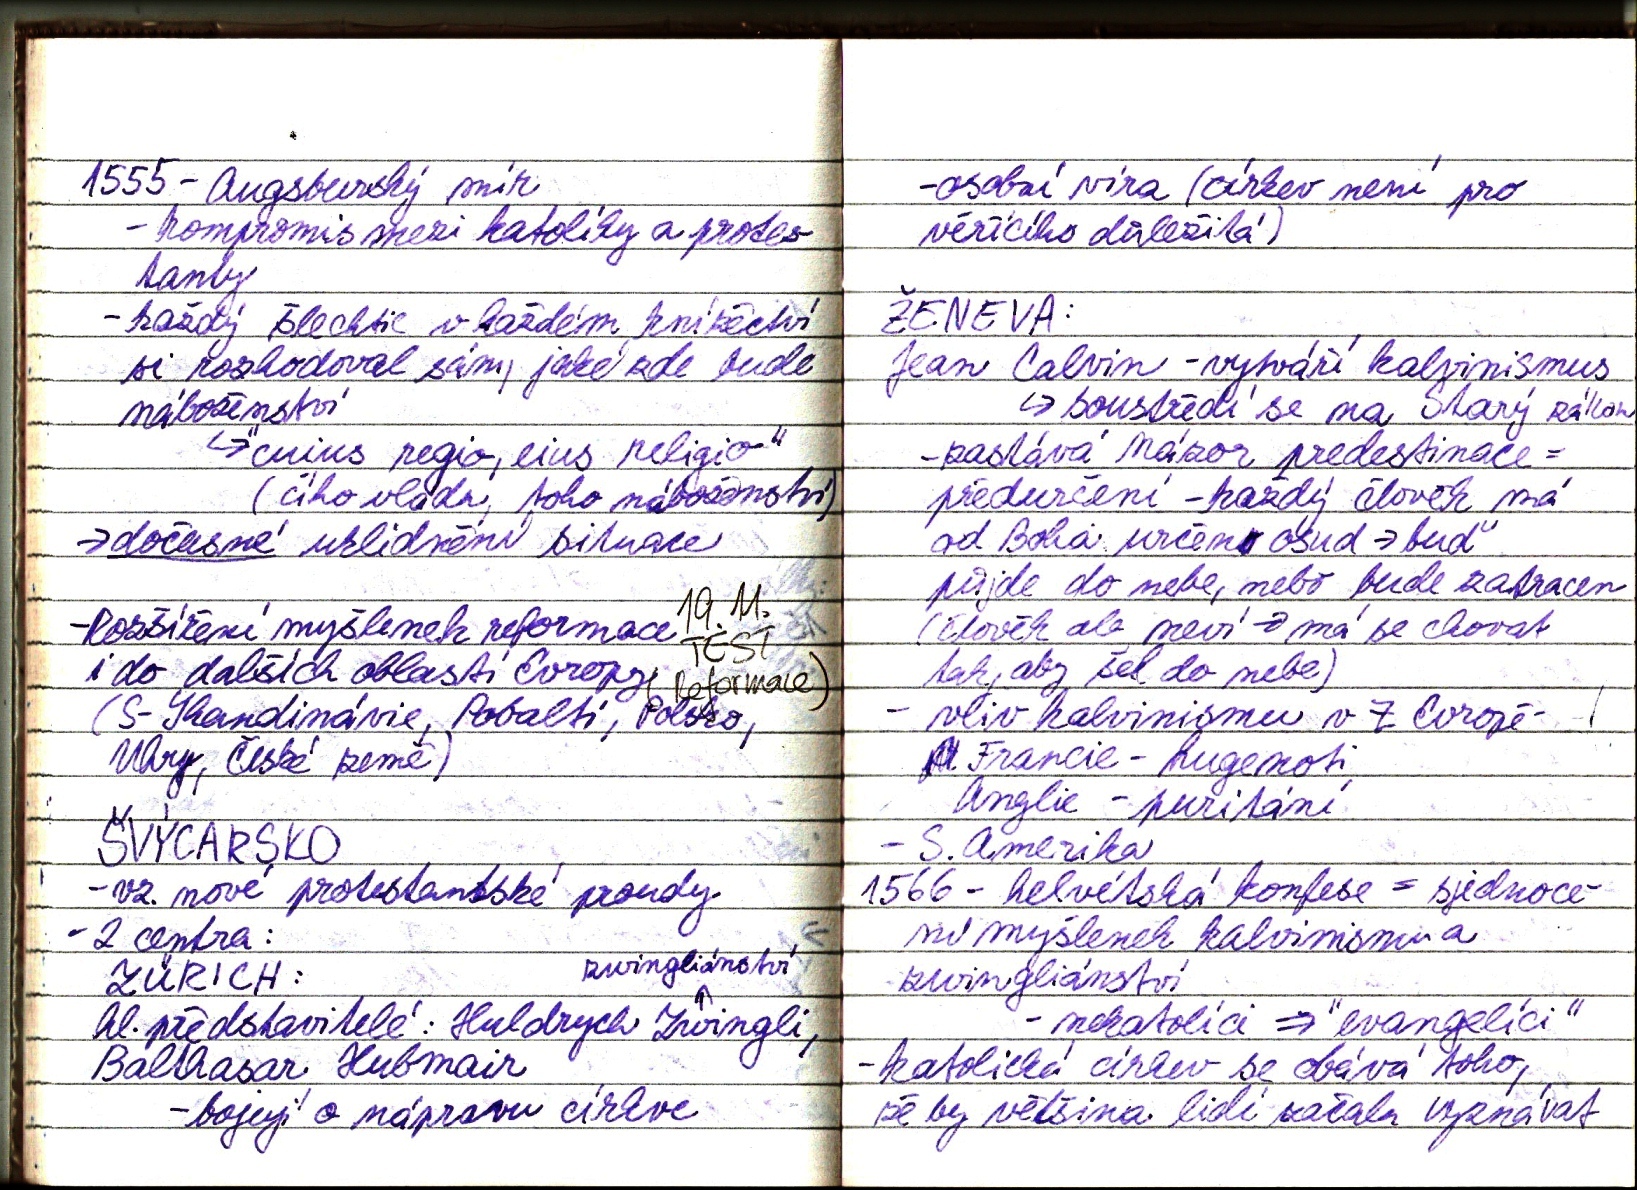 1555 - Augsburský mír
- kompromis mezi katolíky a protes-
tanty
- každý šlechtic v každém knížectví
si rozhodoval sám, jaké zde bude
náboženství
↳ "cuius regio, eius religio"
(čího vládní, toho náboženství)
→ dočasné uklidnění situace
19. 11.
TEST
(Reformace)
- Rozšíření myšlenek reformace
i do dalších oblastí Evropy
(S - Skandinávie, Pobaltí, Polsko,
Uhry, České země)
ŠVÝCARSKO
- vz. nové protestantské proudy
- 2 centra:
ZÜRICH:
zwingliánství
↑
hl. představitelé: Huldrych Zwingli,
Balthasar Hubmair
- bojují o nápravu církve
- osobní víra (církev není pro
věřícího důležitá)
ŽENEVA:
Jean Calvin - vytváří kalvinismus
↳ soustředí se na Starý zákon
- zastává názor predestinace =
předurčení - každý člověk má
od Boha určen osud → buď
půjde do nebe, nebo bude zatracen
(člověk ale neví → má se chovat
tak, aby šel do nebe)
- vliv kalvinismu v Z Evropě -
Francie - hugenoti
Anglie - puritáni
- S. Amerika
1566 - helvétská konfese = sjednoce-
ní myšlenek kalvinismu a
zwingliánství
- nekatolíci ⇒ "evangelíci"
- katolická církev se obává toho,
že by většina lidí začala vyznávat